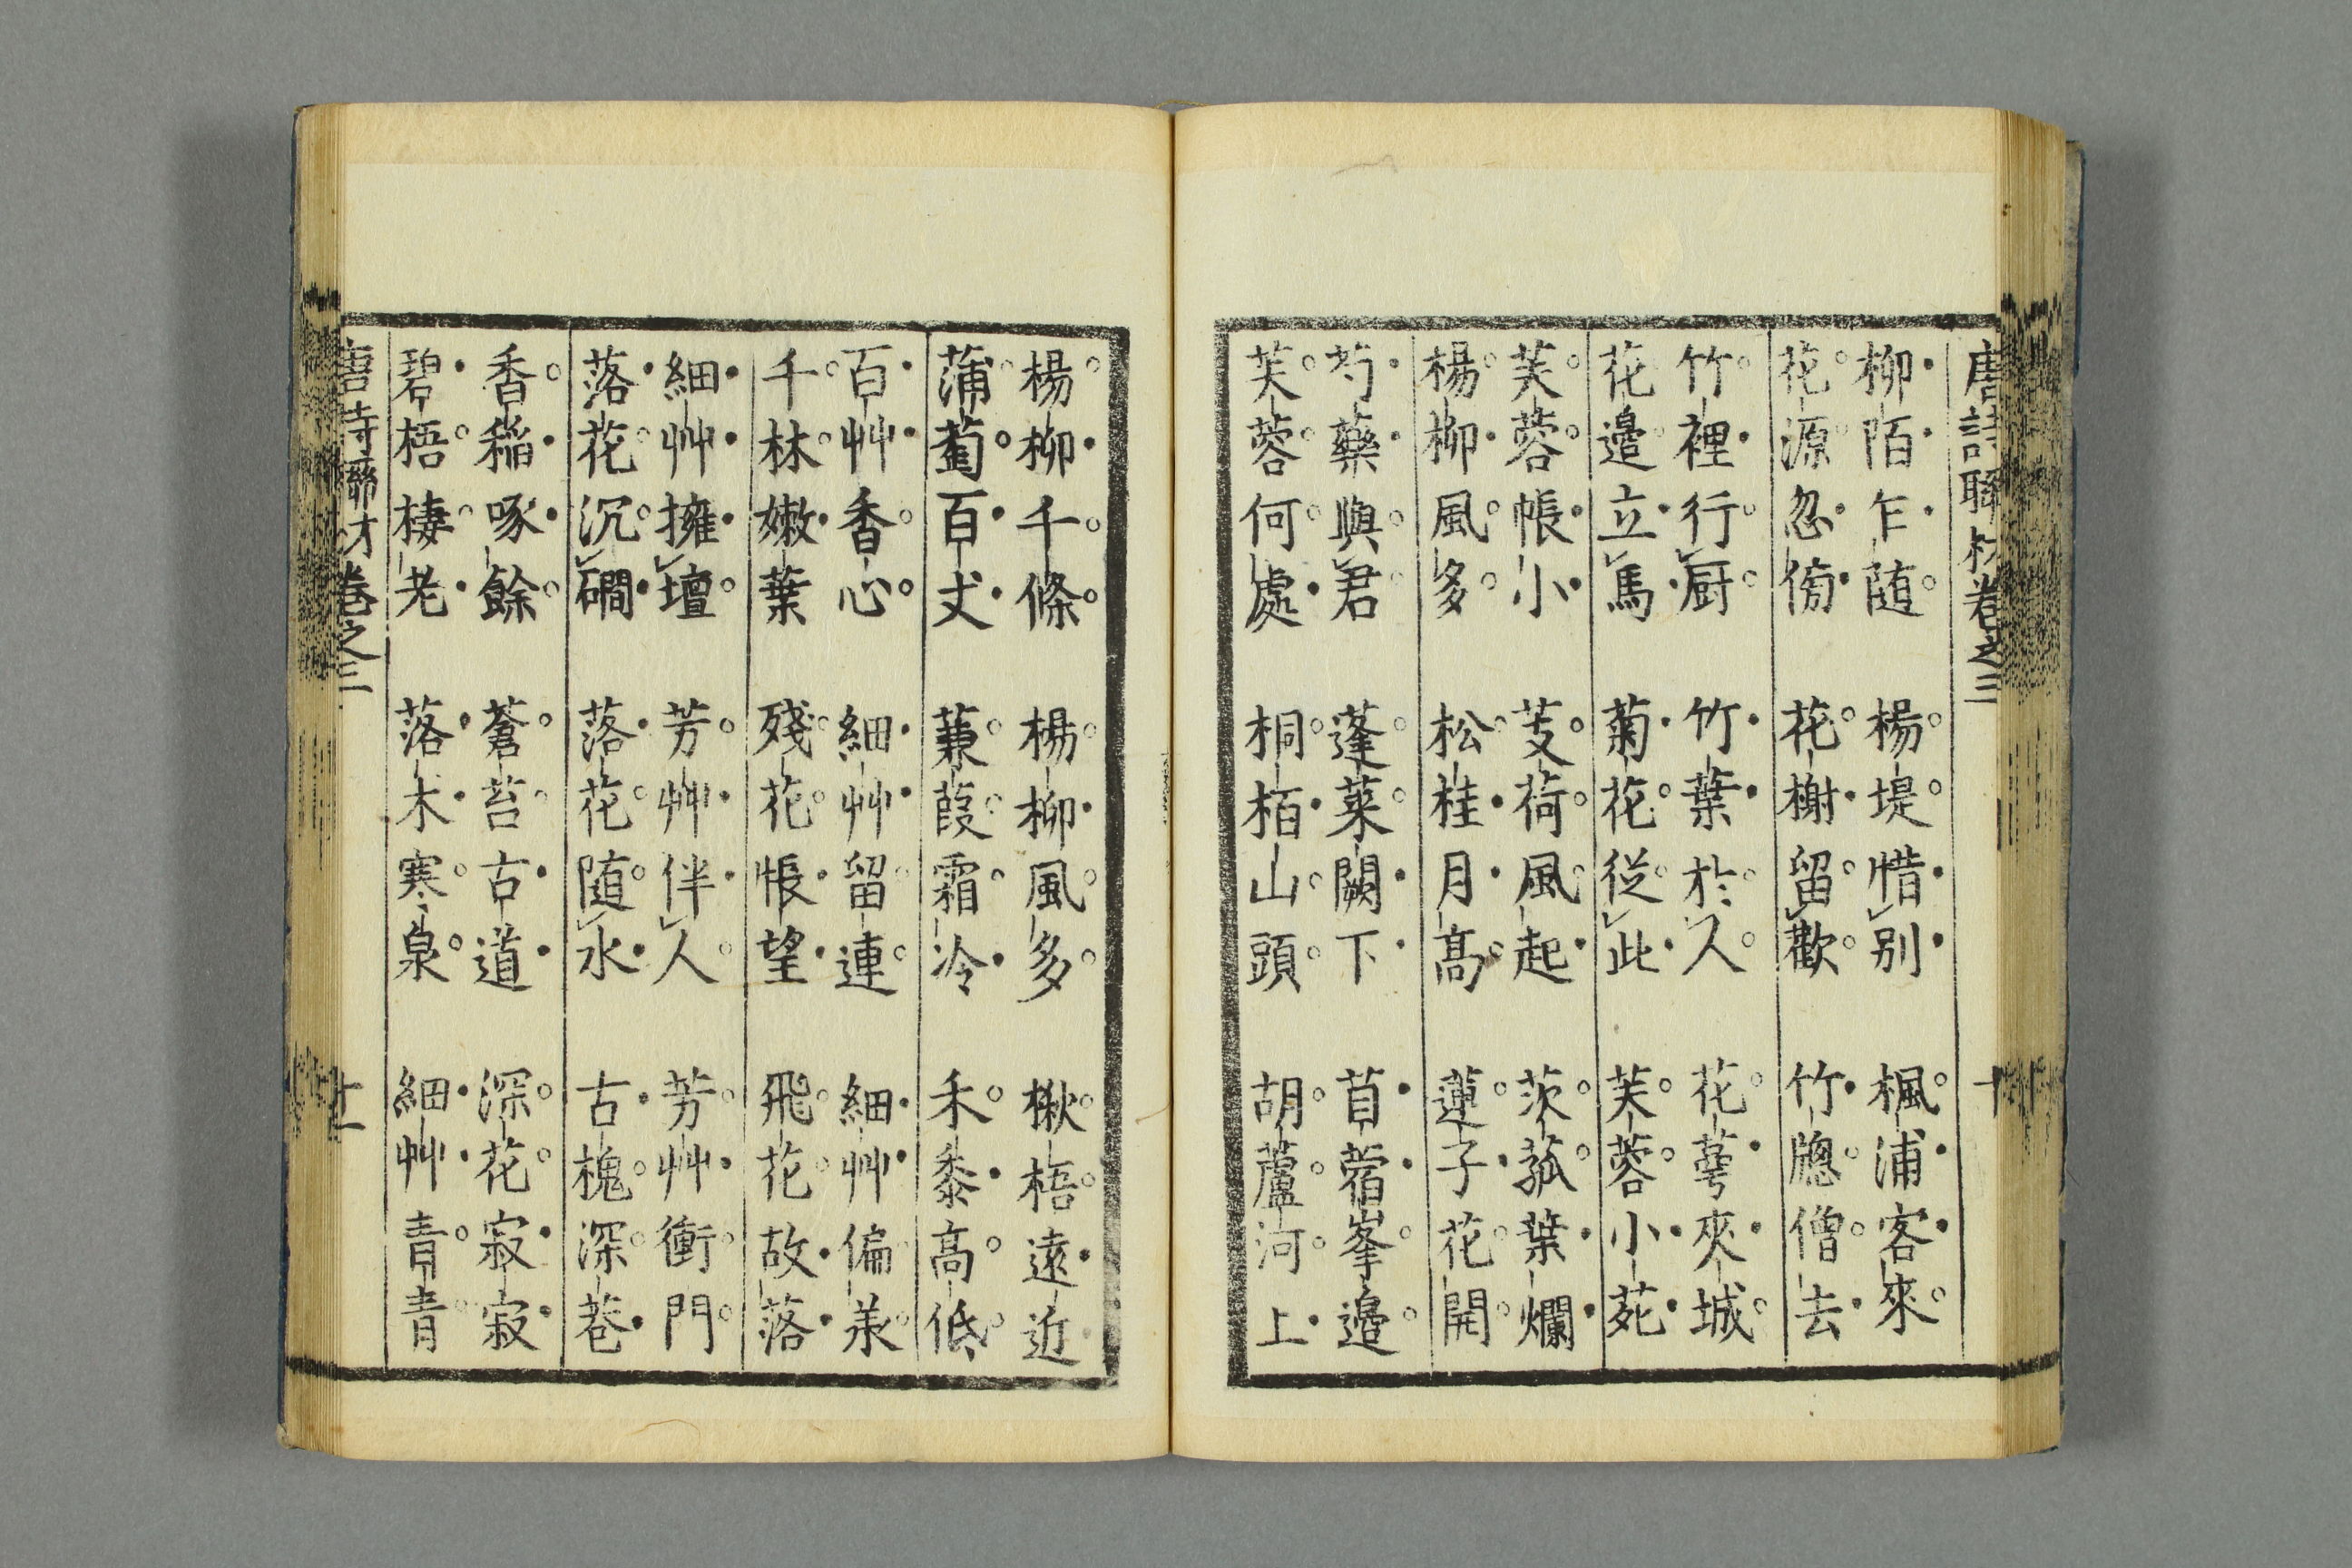 唐詩聯材卷之三 十
柳陌乍随 楊堤惜别 楓浦客來
花源忽傍 花榭留歡 竹牕僧去
竹裡行厨 竹葉於人 花萼夾城
花邉立馬 菊花從此 芙蓉小苑
芙蓉帳小 芰荷風起 茨菰葉爛
楊柳風多 松桂月髙 蓮子花開
芍藥與君 蓬萊闕下 苜蓿峯邉
芙蓉何處 桐栢山頭 胡蘆河上
楊柳千條 楊柳風多 楸梧遠近
蒲萄百丈 蒹葭霜冷 禾黍高低
百艸香心 細艸留連 細艸偏羕
千林嫩葉 殘花悵望 飛花故落
細艸擁壇 芳艸伴人 芳艸衝門
落花沉磵 落花随水 古槐深巷
香稲啄餘 蒼苔古道 深花寂寂
碧梧棲老 落木寒泉 細艸青青
唐詩聯材卷之三 十一